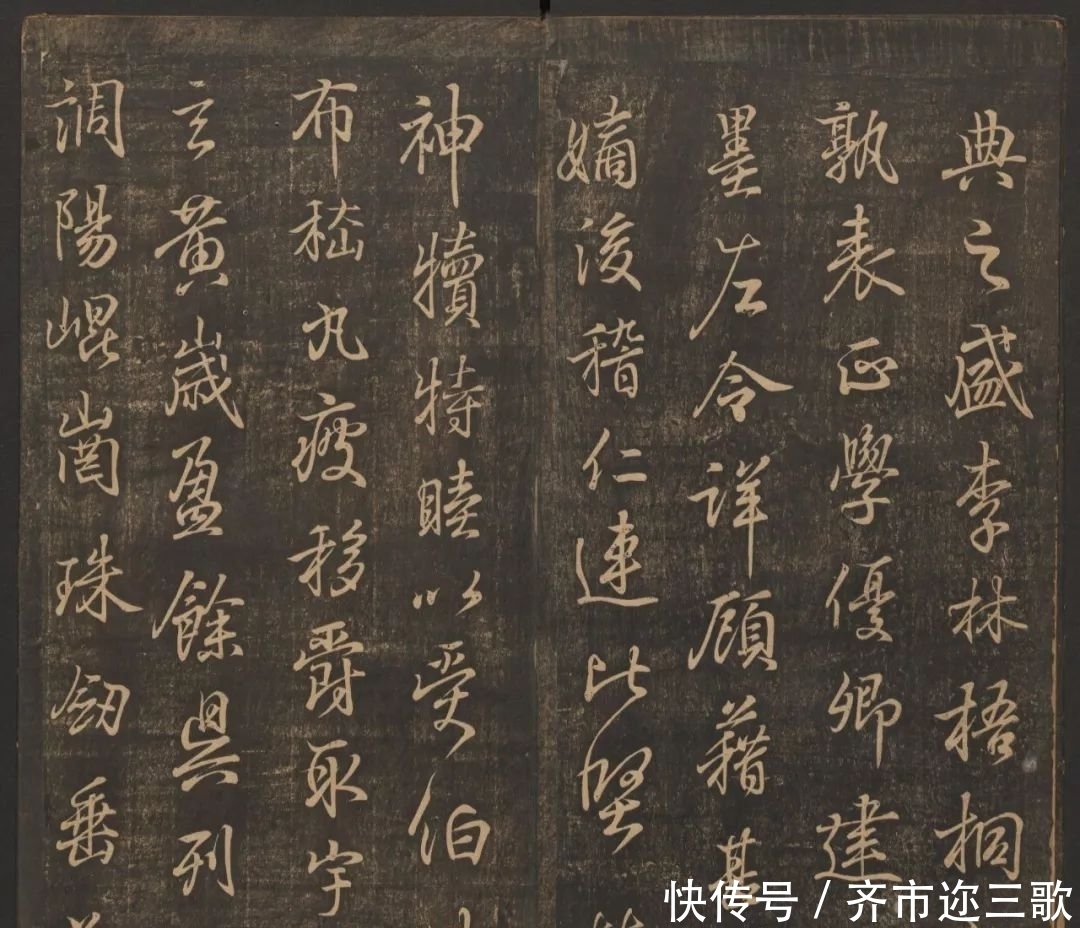 典之盛李林梧桐
孰表正學優卿建
墨左令詳顧藉甚
嫡後稽仁連此堅
神犢特睦以受伯
布嵇丸疲移爵取宇
之黃歲盈餘具刊
調陽崐崗珠劒垂
快传号 / 齐市迩三歌